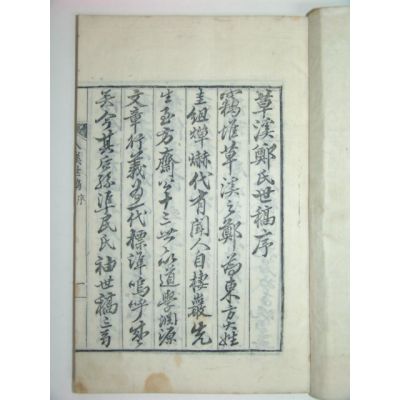 草溪鄭氏世稿序
竊惟草溪之鄭爲東方大姓
圭組燀爀代有聞人自棲巖先
生至方齋公十三世以道學淵源
文章行義爲一代標準嗚呼盛
矣今其后孫淮民氏袖世稿三